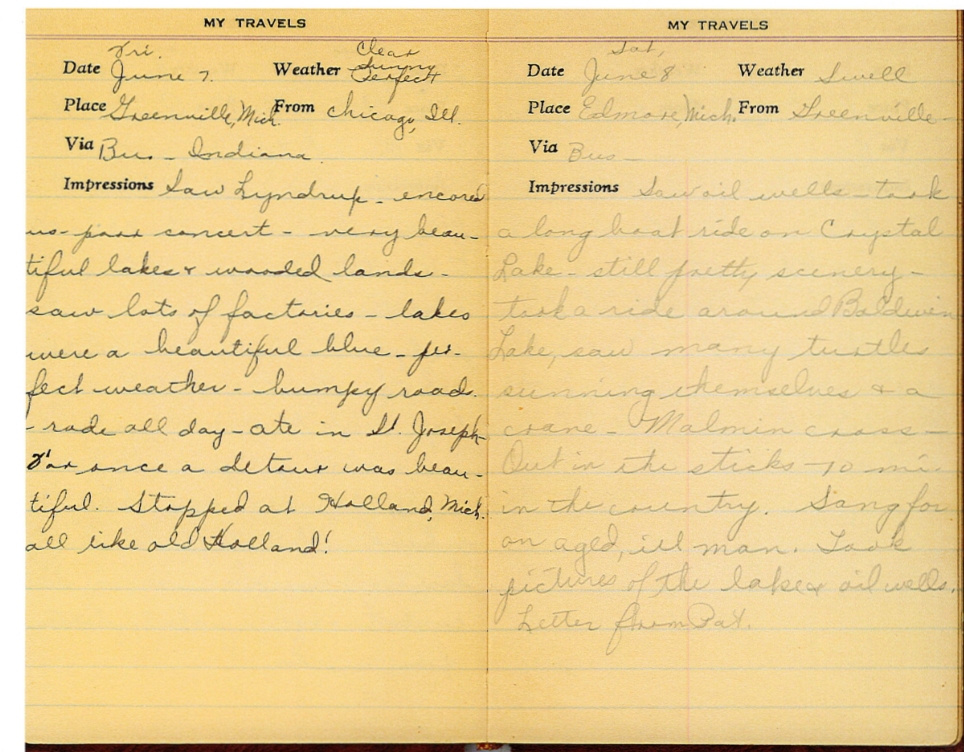 MY TRAVELS
Fri.
Date June 7. Weather Clear
Sunny
Perfect
Place Greenville, Mich. From Chicago, Ill.
Via Bus - Indiana.
Impressions Saw Lyndrup - encored
us - poor concert - very beau-
tiful lakes & wooded lands -
saw lots of factories - lakes
were a beautiful blue - per-
fect weather - bumpy road
- rode all day - ate in St. Joseph -
For once a detour was beau-
tiful. Stopped at Holland, Mich.
all like old Holland!
MY TRAVELS
Sat,
Date June 8 Weather Swell
Place Edmore, Mich. From Greenville -
Via Bus -
Impressions Saw oil wells - took
a long boat ride on Crystal
Lake - still pretty scenery -
took a ride around Baldwin
Lake, saw many turtles
sunning themselves & a
crane - Malmin cross -
Out in the sticks - 10 mi.
in the country. Sang for
an aged, ill man. Took
pictures of the lake & oil wells.
Letter from Pat.